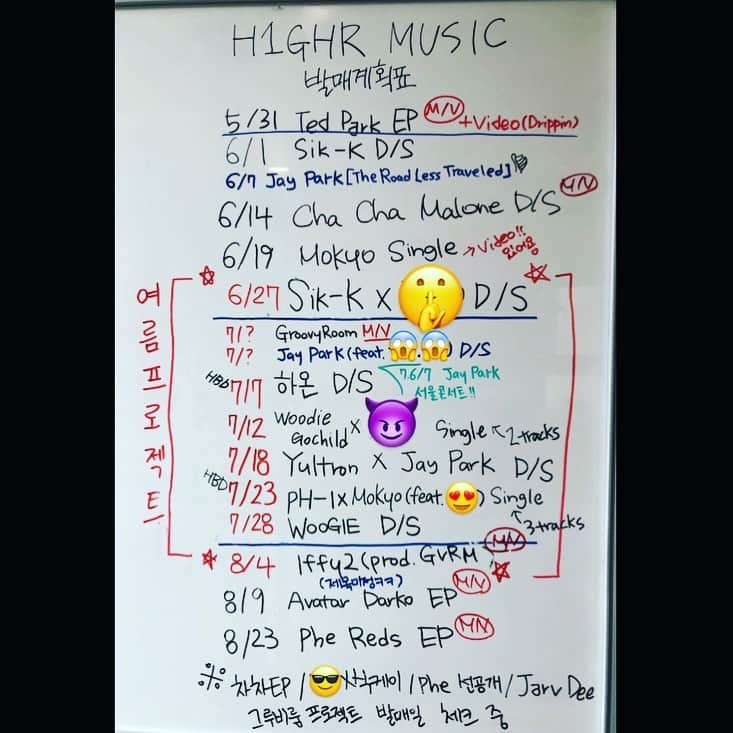 H1GHR MUSIC
발매계획표
5/31 Ted Park EP M/V +Video(Drippin)
6/1 Sik-K D/S
6/7 Jay Park [The Road Less Traveled]
6/14 Cha Cha Malone D/S M/V
6/19 Mokyo Single →Video!! 있어용
여름프로젝트
6/27 Sik-K X D/S
7/? GroovyRoom M/V
7/? Jay Park (feat. ) D/S
HBD 7/7 하온 D/S 7.6/7 Jay Park 서울콘서트!!
7/12 Woodie Gochild X Single 2-tracks
7/18 Yultron X Jay Park D/S
HBD 7/23 PH-1 X Mokyo (feat. ) Single 3-tracks
7/28 WOOGIE D/S
8/4 Iffy2 (prod. GVRM M/V
(제목미정ㅋㅋ)
8/9 Avatar Darko EP M/V
8/23 Phe Reds EP M/V
※ 차차EP / X 식케이 / Phe 선공개 / Jarv Dee
그루비룸 프로젝트 발매일 체크 중